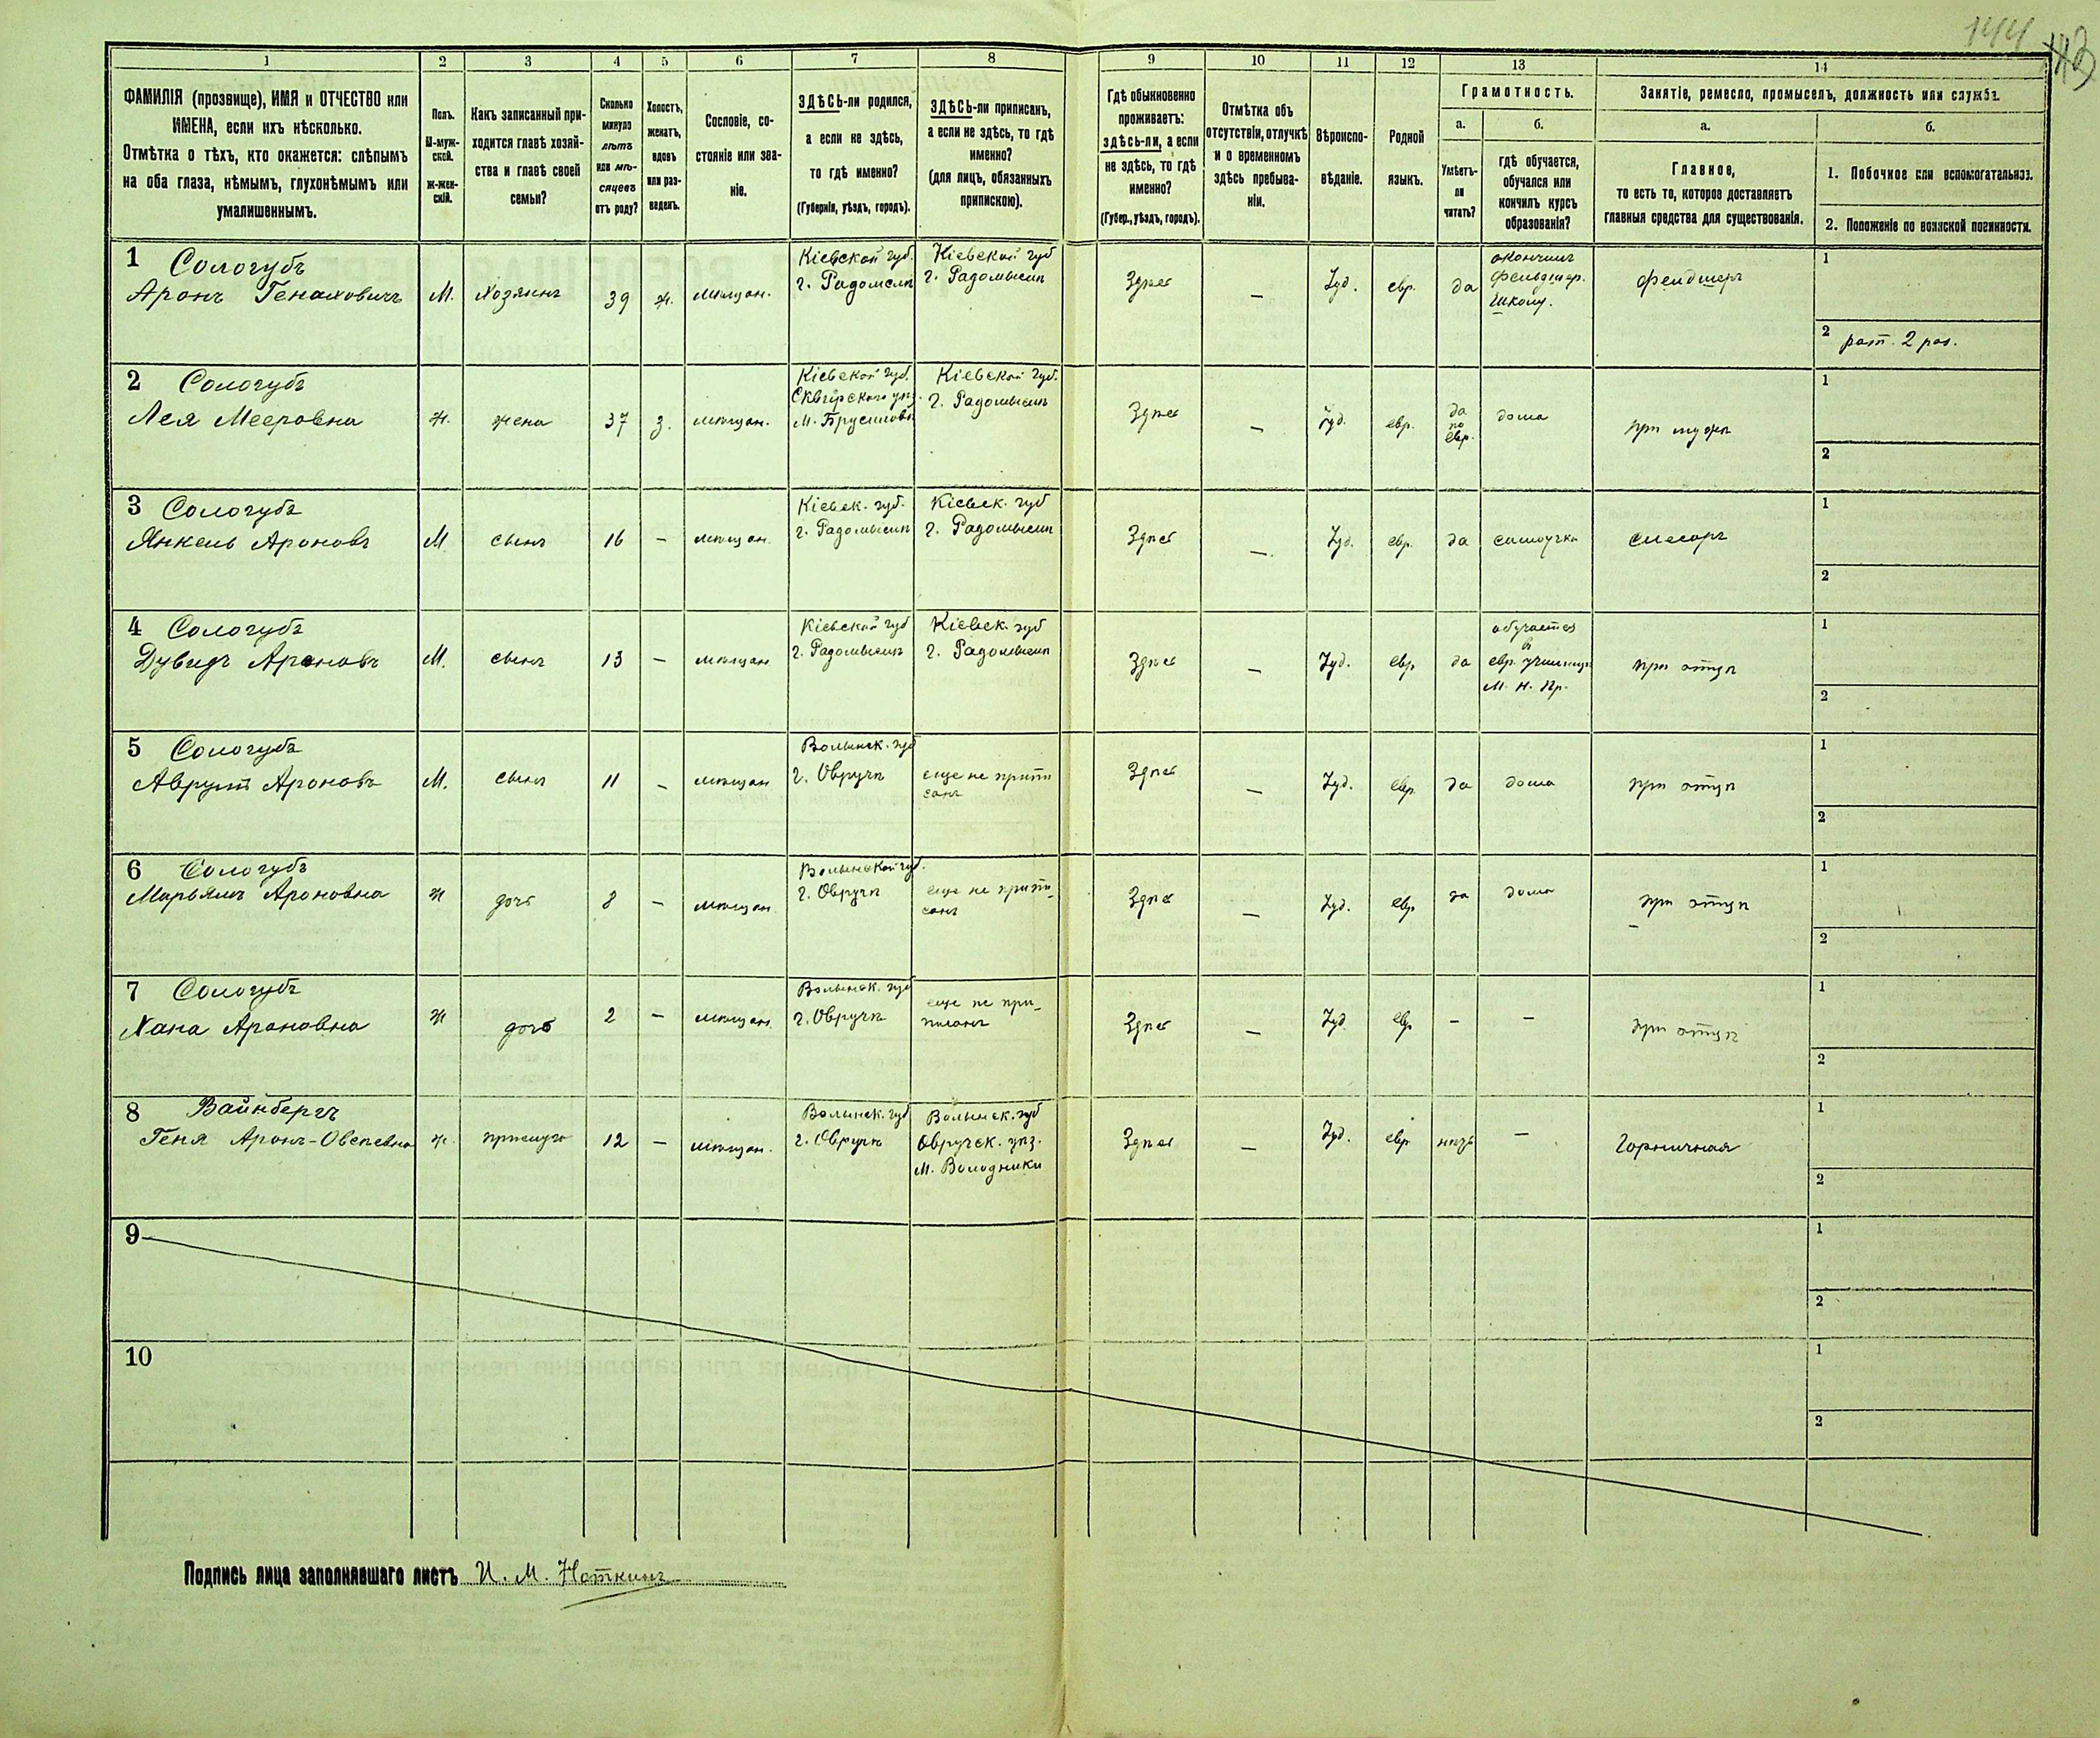 144
1 2 3 4 5 6 7 8 9 10 11 12 13 14
ФАМИЛІЯ (прозвище), ИМЯ и ОТЧЕСТВО или
ИМЕНА, если ихъ нѣсколько.
Отмѣтка о тѣхъ, кто окажется: слѣпымъ
на оба глаза, нѣмымъ, глухонѣмымъ или
умалишеннымъ.
Полъ.
М-муж-
ской.
Ж-жен-
скій.
Какъ записанный при-
ходится главѣ хозяй-
ства и главѣ своей
семьи?
Сколько
минуло
лѣтъ
или мѣ-
сяцевъ
отъ роду?
Холостъ,
женатъ,
вдовъ
или раз-
веденъ.
Сословіе, со-
стояніе или зва-
ніе.
ЗДѢСЬ-ли родился,
а если не здѣсь,
то гдѣ именно?
(Губернія, уѣздъ, городъ).
ЗДѢСЬ-ли приписанъ,
а если не здѣсь, то гдѣ
именно?
(для лицъ, обязанныхъ
припискою).
Гдѣ обыкновенно
проживаетъ:
здѣсь-ли, а если
не здѣсь, то гдѣ
именно?
(Губер., уѣздъ, городъ).
Отмѣтка объ
отсутствіи, отлучкѣ
и о временномъ
здѣсь пребыва-
ніи.
Вѣроиспо-
вѣданіе.
Родной
языкъ.
Грамотность.
а.
Умѣетъ-
ли
читать?
б.
гдѣ обучается,
обучался или
кончилъ курсъ
образованія?
Занятіе, ремесло, промыселъ, должность или служба.
а.
Главное,
то есть то, которое доставляетъ
главныя средства для существованія.
б.
1. Побочное или вспомогательное.
2. Положеніе по воинской повинности.
1 Сологубъ
Аронъ Генаховичъ
М.
Хозяинъ
39
ж.
мѣщан.
Кіевской губ.
г. Радомслѣ
Кіевской губ
г. Радомыслѣ
Здѣсь
—
Іуд.
евр.
да
окончилъ
фельдшер.
школу.
фелдшеръ
1
2 рат. 2 раз.
2 Сологубъ
Лея Мееровна
ж.
жена
37
з.
мѣщан.
Кіевской губ.
Сквирского уѣз.
м. Брусиловъ
Кіевской губ.
г. Радомыслѣ
Здѣсь
—
Іуд.
евр.
да
по
евр.
дома
при мужѣ
1
2
3 Сологубъ
Янкель Ароновъ
М
сынъ
16
—
мѣщан.
Кіевск. губ.
г. Радомыслѣ
Кіевск. губ
г. Радомыслѣ
Здѣсь
—
Іуд.
евр.
да
самоучка
слесарь
1
2
4 Сологубъ
Дувидъ Ароновъ
М.
сынъ
13
—
мѣщан
Кіевской губ
г. Радомыслѣ
Кіевск. губ
г. Радомыслѣ
Здѣсь
—
Іуд.
евр
да
обучается
въ
евр. училищѣ
М. Н. Пр.
при отцѣ
1
2
5 Сологубъ
Аврумъ Ароновъ
М.
сынъ
11
—
мѣщан
Волынск. губ
г. Овручѣ
еще не припи
санъ
Здѣсь
—
Іуд.
евр
да
дома
при отцѣ
1
2
6 Сологубъ
Марьямъ Ароновна
ж
дочь
8
—
мѣщан.
Волынской губ.
г. Овручѣ
еще не припи-
санъ
Здѣсь
—
Іуд.
евр
да
дома
при отцѣ
1
2
7 Сологубъ
Хана Ароновна
ж
дочь
2
—
мѣщан.
Волынск. губ
г. Овручѣ
еще не при-
писанъ
Здѣсь
—
Іуд
евр
—
—
при отцѣ
1
2
8 Вайнбергъ
Геня Аронъ-Овсеевна
ж.
прислуга
12
—
мѣщан.
Волынск. губ
г. Овручѣ
Волынск. губ
Овручск. уѣз.
м. Володники
Здѣсь
—
Іуд.
евр
нѣтъ
—
Горничная
1
2
9
1
2
10
1
2
Подпись лица заполнявшаго листъ И. М. Ноткинъ